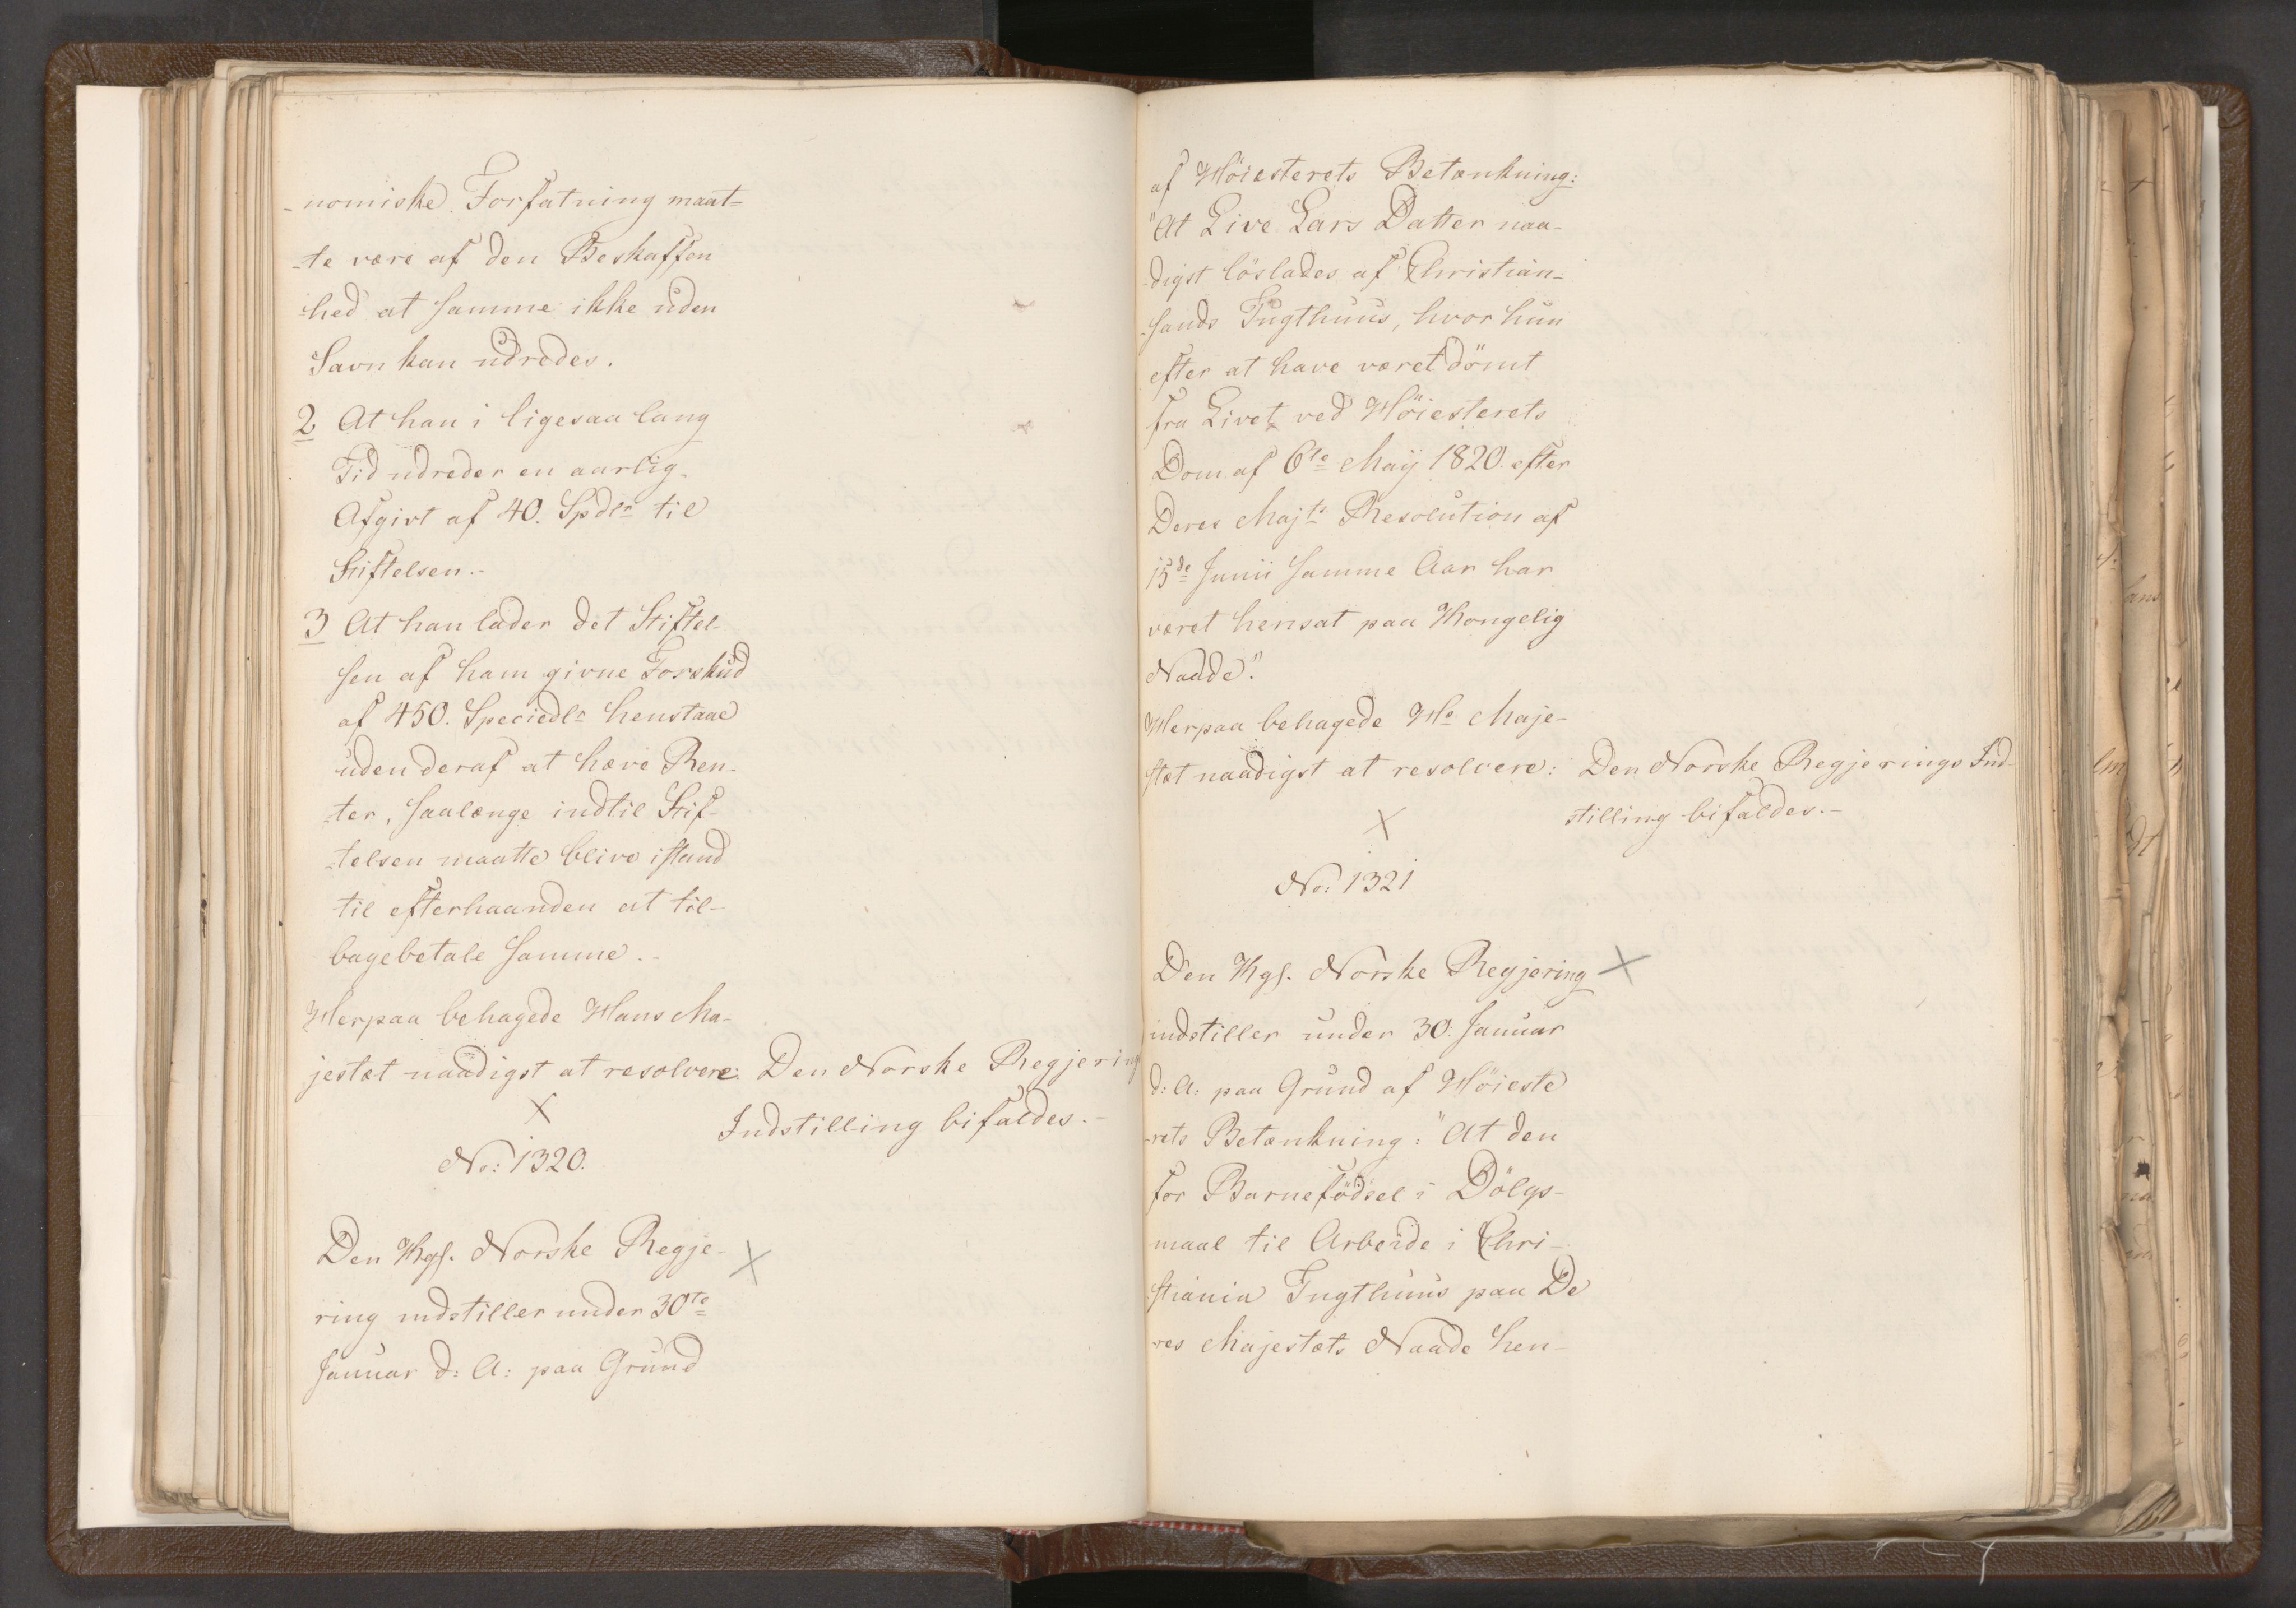 -nomiske Forfatning maat-
-te være af den Beskaffen
-hed at samme ikke uden
Savn kan udredes.
2 At han i ligesaa lang
Tid udreder en aarlig-
Afgivt af 40. Spdlr til
Stiftelsen.-
3 At han lader det Stiftel-
sen af ham givne Forskud
af 450. Speciedlr henstaae
uden deraf at hæve Ren-
-ter, saalænge indtil Stif-
-telsen maatte blive istand
til efterhaanden at til-
bagebetale samme.-
Herpaa behagede Hans Ma-
jestæt naadigst at resolvere: Den Norske Regjering
Indstilling bifaldes.-
X
No: 1320.
Den Kgs. Norske Regje- X
ring indstiller under 30te
Januar d: A: paa Grund
af Höiesterets Betænkning:
"At Live Lars Datter naa-
-digst löslades af Christian-
-sands Tugthuus, hvor hun
efter at have været dömt
fra Livet ved Höiesterets
Dom af 6te Maij 1820. efter
Deres Majts Resolution af
15de Junii samme Aar har
været hensat paa Kongelig
Naade."
Herpaa behagede Hs Maje-
stæt naadigst at resolvere: Den Norske Regjerings Ind-
stilling bifaldes.-
X
No: 1321
Den Kgs. Norske Regjering X
indstiller under 30. Januar
d: A: paa Grund af Höieste
-rets Betænkning: "At den
for Barnefödsel i Dölgs-
maal til Arbeide i Chri-
stiania Tugthuus paa De
-res Majestæts Naade hen-